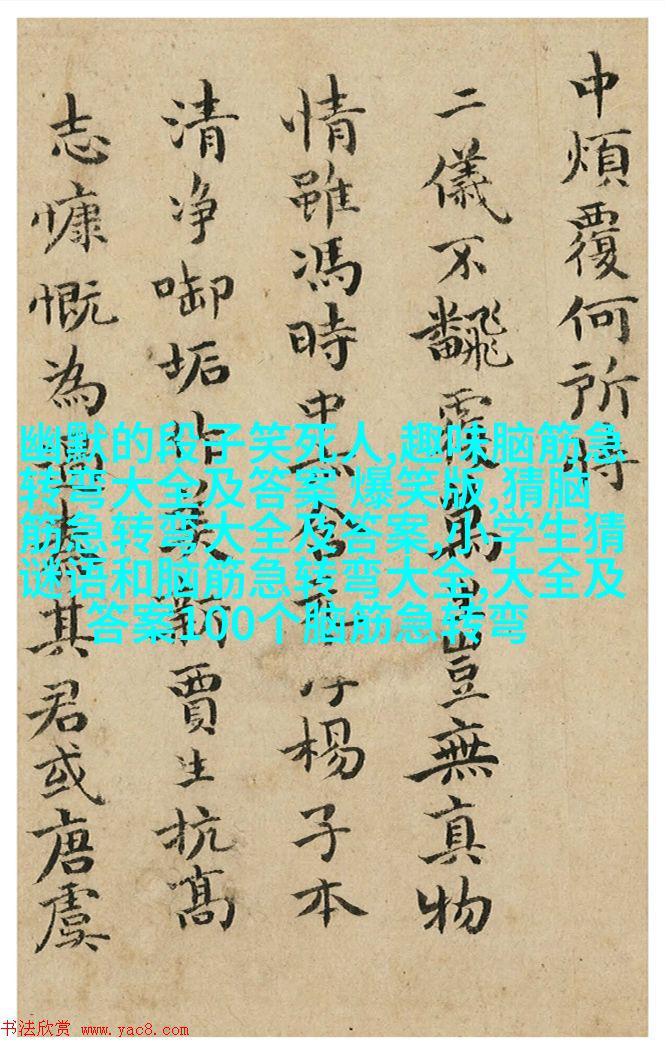 中煩覆何所
二儀不飜覆豈無真物
情雖馮時中楊子本
清净啣垢賈生抗高
志慷慨為其君或唐虞
幽默的段子笑死人,趣味脑筋急
转弯大全及答案 爆笑版,猜脑
筋急转弯大全及答案,小学生猜
谜语和脑筋急转弯大全,大全及
答案100个脑筋急转弯
书法欣赏 www.yac8.com